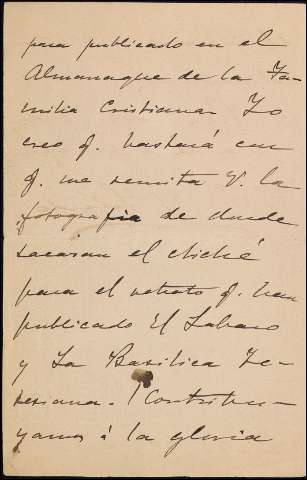 para publicado en el
Almanaque de la Fa-
milia Cristiana. Yo
creo q. bastará con
q. me remita V. la
fotografia de donde
sacaran el cliché
para el retrato q. han
publicado El Lábaro
y La Basilica Te-
resiana. ¡Contribu-
yamos á la gloria